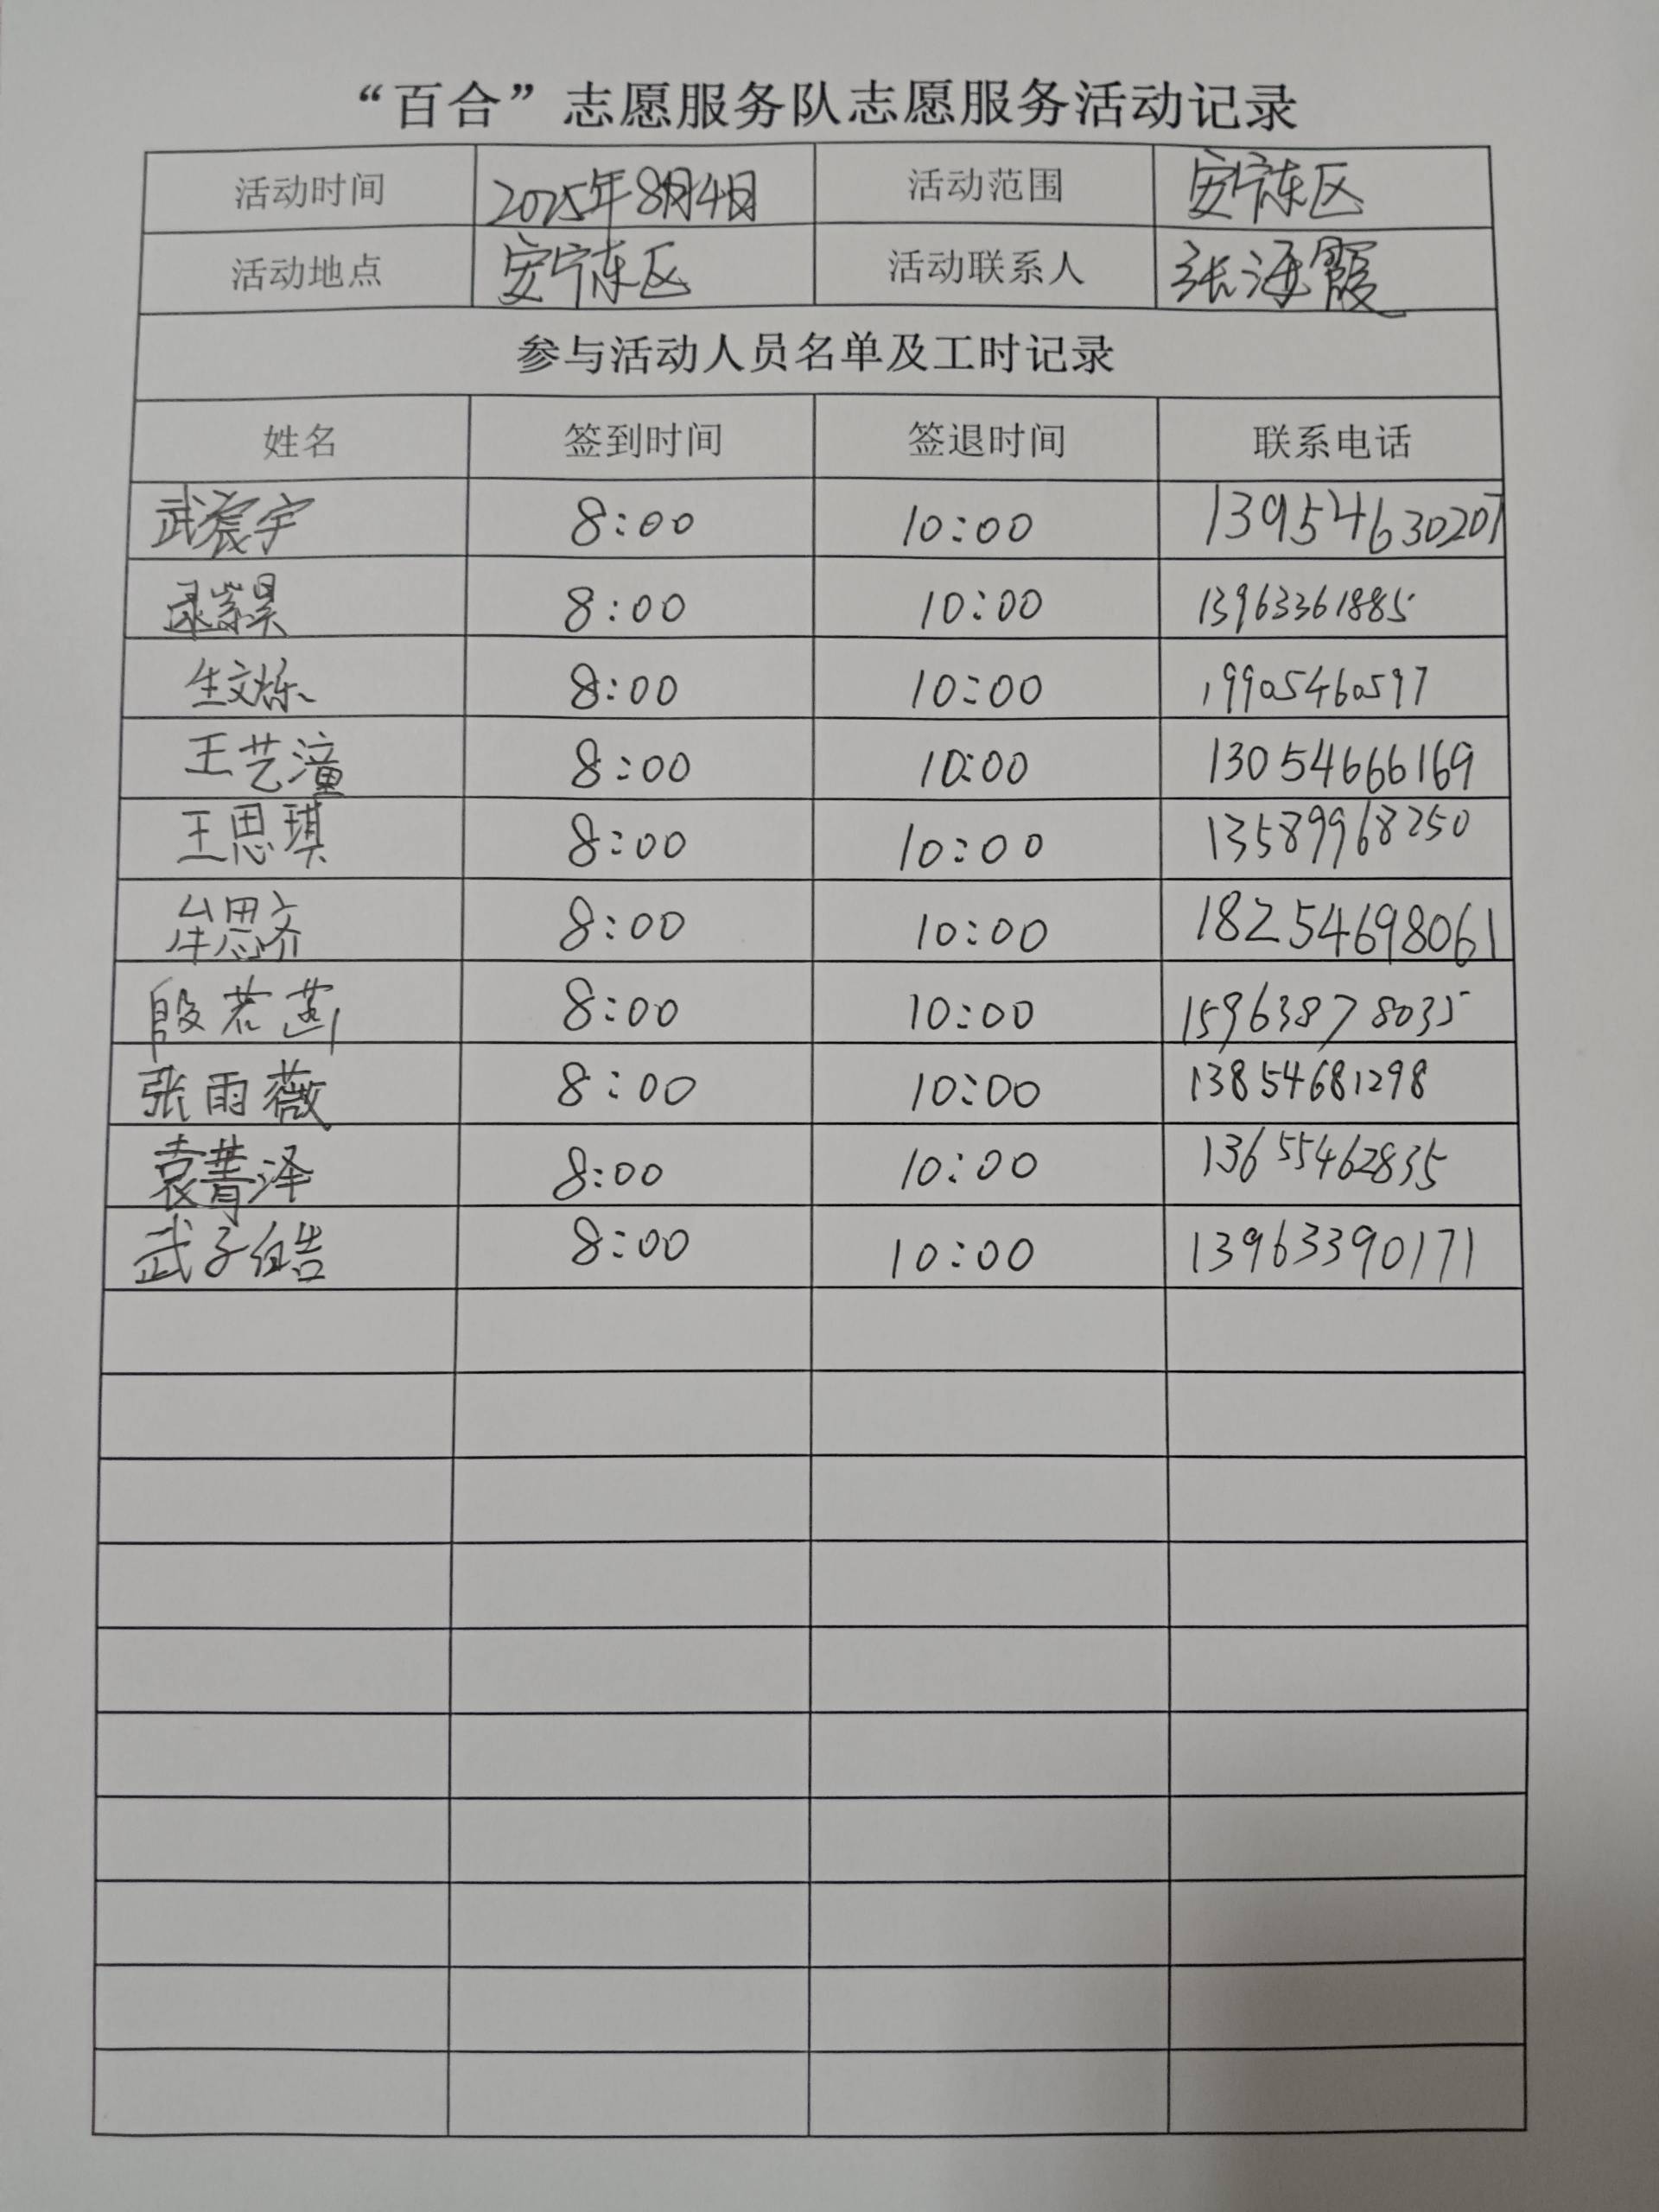 “百合”志愿服务队志愿服务活动记录
活动时间 2025年8月4日 活动范围 安宁东区
活动地点 安宁东区 活动联系人 张海霞
参与活动人员名单及工时记录
姓名 签到时间 签退时间 联系电话
武宸宇 8:00 10:00 13954630207
8:00 10:00 13963361885
生文烁 8:00 10:00 19905460597
王艺潼 8:00 10:00 13054666169
王思琪 8:00 10:00 13589968250
牟思齐 8:00 10:00 18254698061
殷若菡 8:00 10:00 15963878035
张雨薇 8:00 10:00 13854681298
袁菁泽 8:00 10:00 13655462835
武子皓 8:00 10:00 13963390171